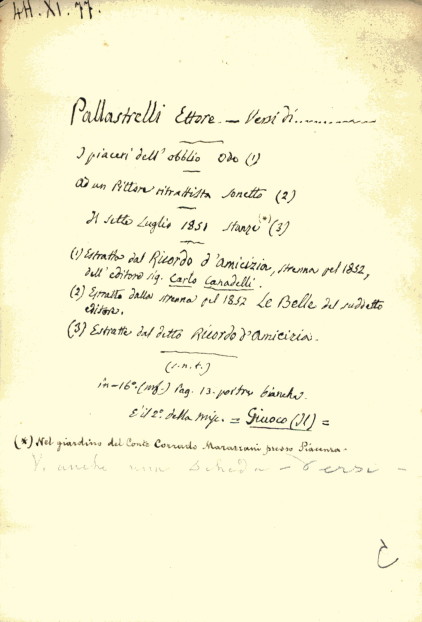 4H. XI. 77.
Pallastrelli Ettore. — Versi di..............
I piaceri dell'obblio Ode (1)
Ad un Pittore ritrattista Sonetto (2)
Il sette Luglio 1851 Stanze (*) (3)
(1) Estratta dal Ricordo d'Amicizia, strenna pel 1852,
dell'editore sig. Carlo Canadelli.
(2) Estratto dalla strenna pel 1852 Le Belle del suddetto
editore.
(3) Estratte dal detto Ricordo d'Amicizia.
(s.n.t.)
in-16°. Pag. 13. postrema bianca.
È il 2° della misc. = Giuoco (Il) =
(*) Nel giardino del Conte Corrado Marazzani presso Piacenza.
V. anche una scheda — Versi —